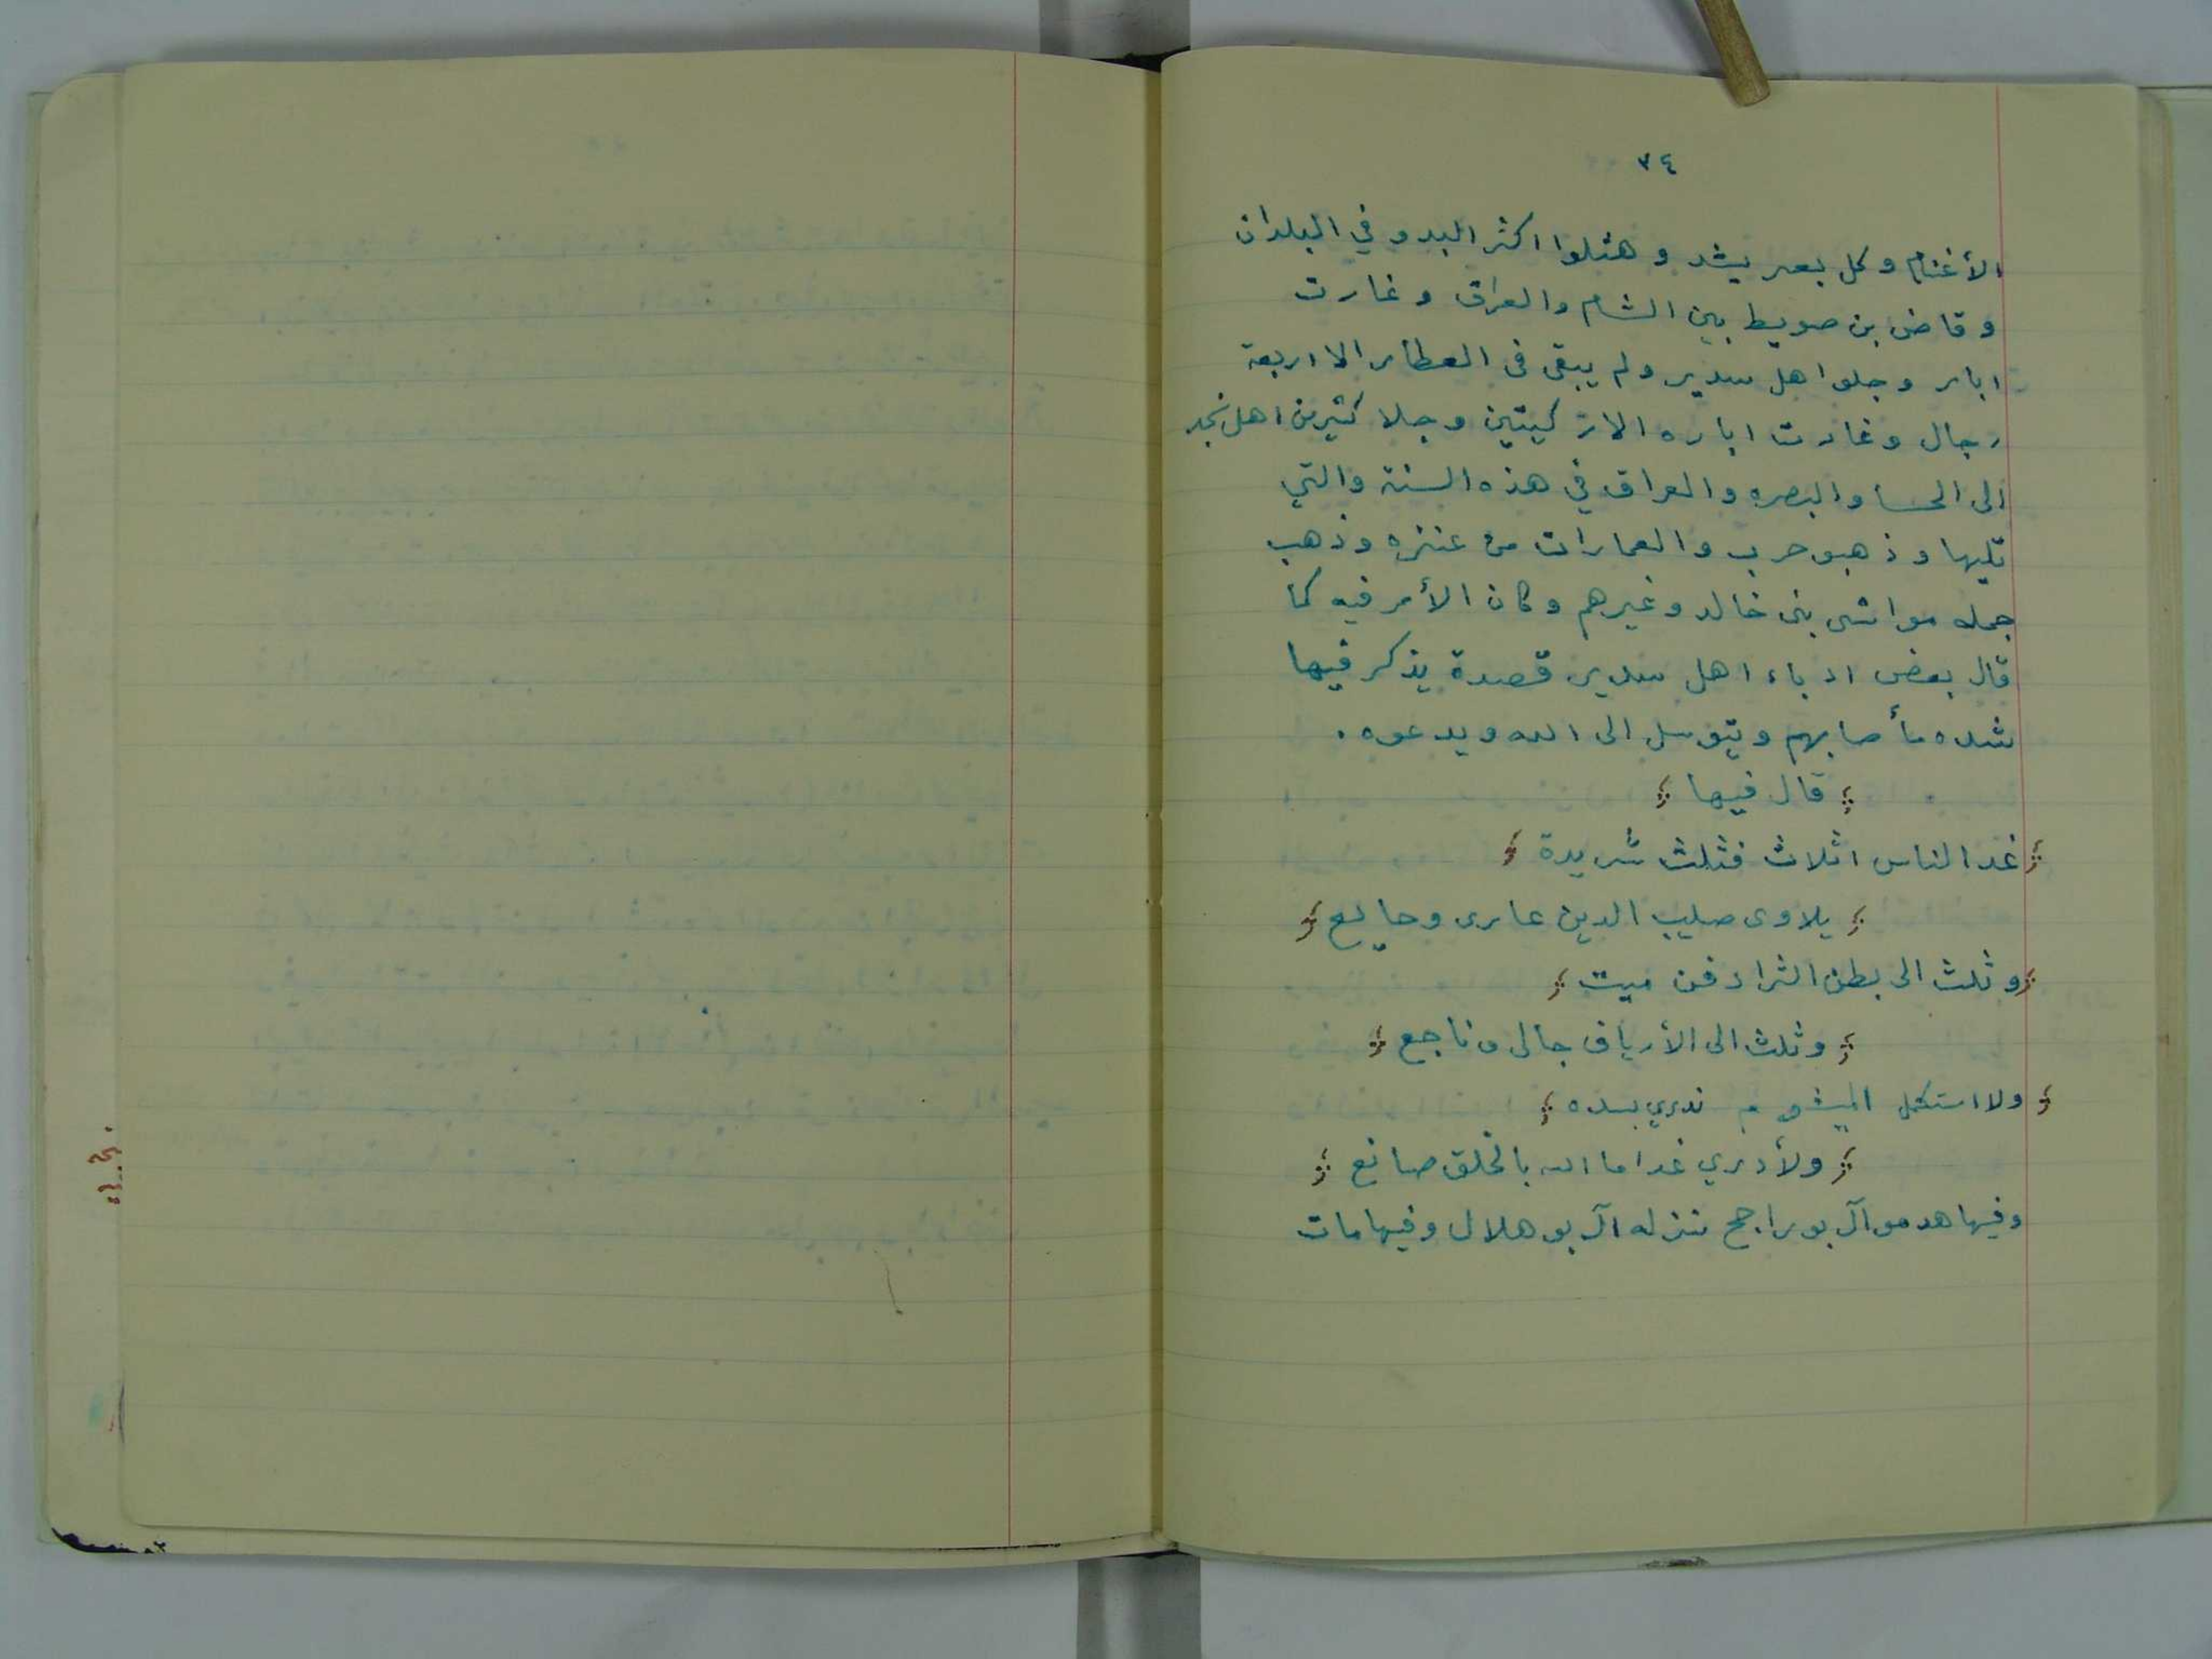 ٣٤
الأغنام وكل بعير يشد وهتلوا اكثر البدو في البلدان
وقاض بن صويط بين الشام والعراق وغارت
ابار وجلوا هل سدير ولم يبقى فى العطار الا اربعة
رجال وغارت اباره الا ركيتين وجلا كثير من اهل نجد
الى الحسا والبصره والعراق في هذه السنة والتي
تليها وذهبو حرب والعمارات من عنزه وذهب
جمله مواشى بنى خالد وغيرهم وكان الأمر فيه كما
قال بعض ادباء اهل سدير قصدة يذكر فيها
شده مأصابهم ويتوسل الى الله ويدعوه.
قال فيها
غدا الناس اثلاث فثلث شريدة
يلاوى صليب الدين عارى وجايع
وثلث الى بطن الثرا دفن ميت
وثلث الى الأرياف جالى وناجع
ولا استكمل ندري بسده
ولأدري غدا ما الله بالخلق صانع
وفيها هدمو آل بوراجح نزله آل بو هلال وفيها مات